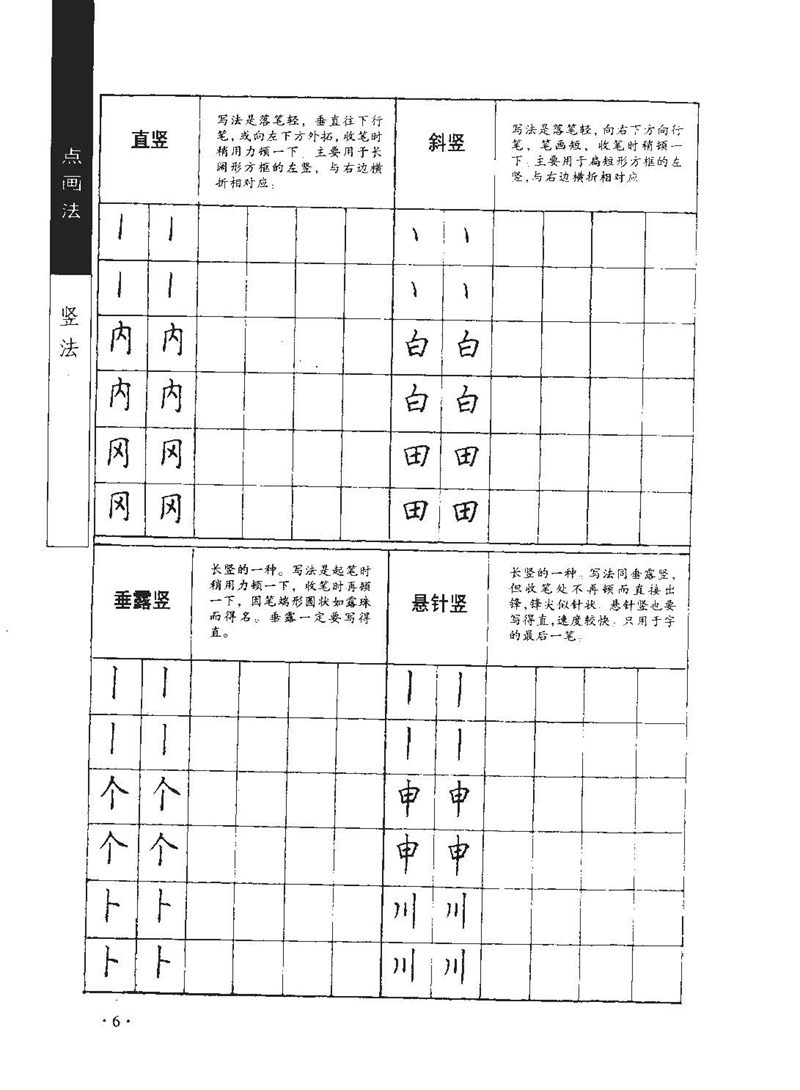 点画法
竖法
直竖
写法是落笔轻，垂直往下行
笔，或向左下方外拓，收笔时
稍用力顿一下．主要用于长
阔形方框的左竖，与右边横
折相对应．
斜竖
写法是落笔轻，向右下方向行
笔，笔画短、收笔时稍顿一
下．主要用于扁短形方框的左
竖，与右边横折相对应
丨 丨 丶 丶
丨 丨 丶 丶
内 内 白 白
内 内 白 白
冈 冈 田 田
冈 冈 田 田
垂露竖
长竖的一种。写法是起笔时
稍用力顿一下，收笔时再顿
一下，因笔端形圆状如露珠
而得名。垂露一定要写得
直。
悬针竖
长竖的一种．写法同垂露竖，
但收笔处不再顿而直接出
锋，锋尖似针状．悬针竖也要
写得直，速度较快．只用于字
的最后一笔．
丨 丨 丨 丨
丨 丨 丨 丨
个 个 申 申
个 个 申 申
卜 卜 川 川
卜 卜 川 川
·6·